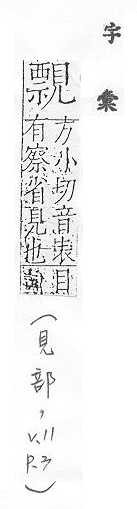 字彙
䙳
方小切音表目
有察省見也
(見部,
v.11
P.3)